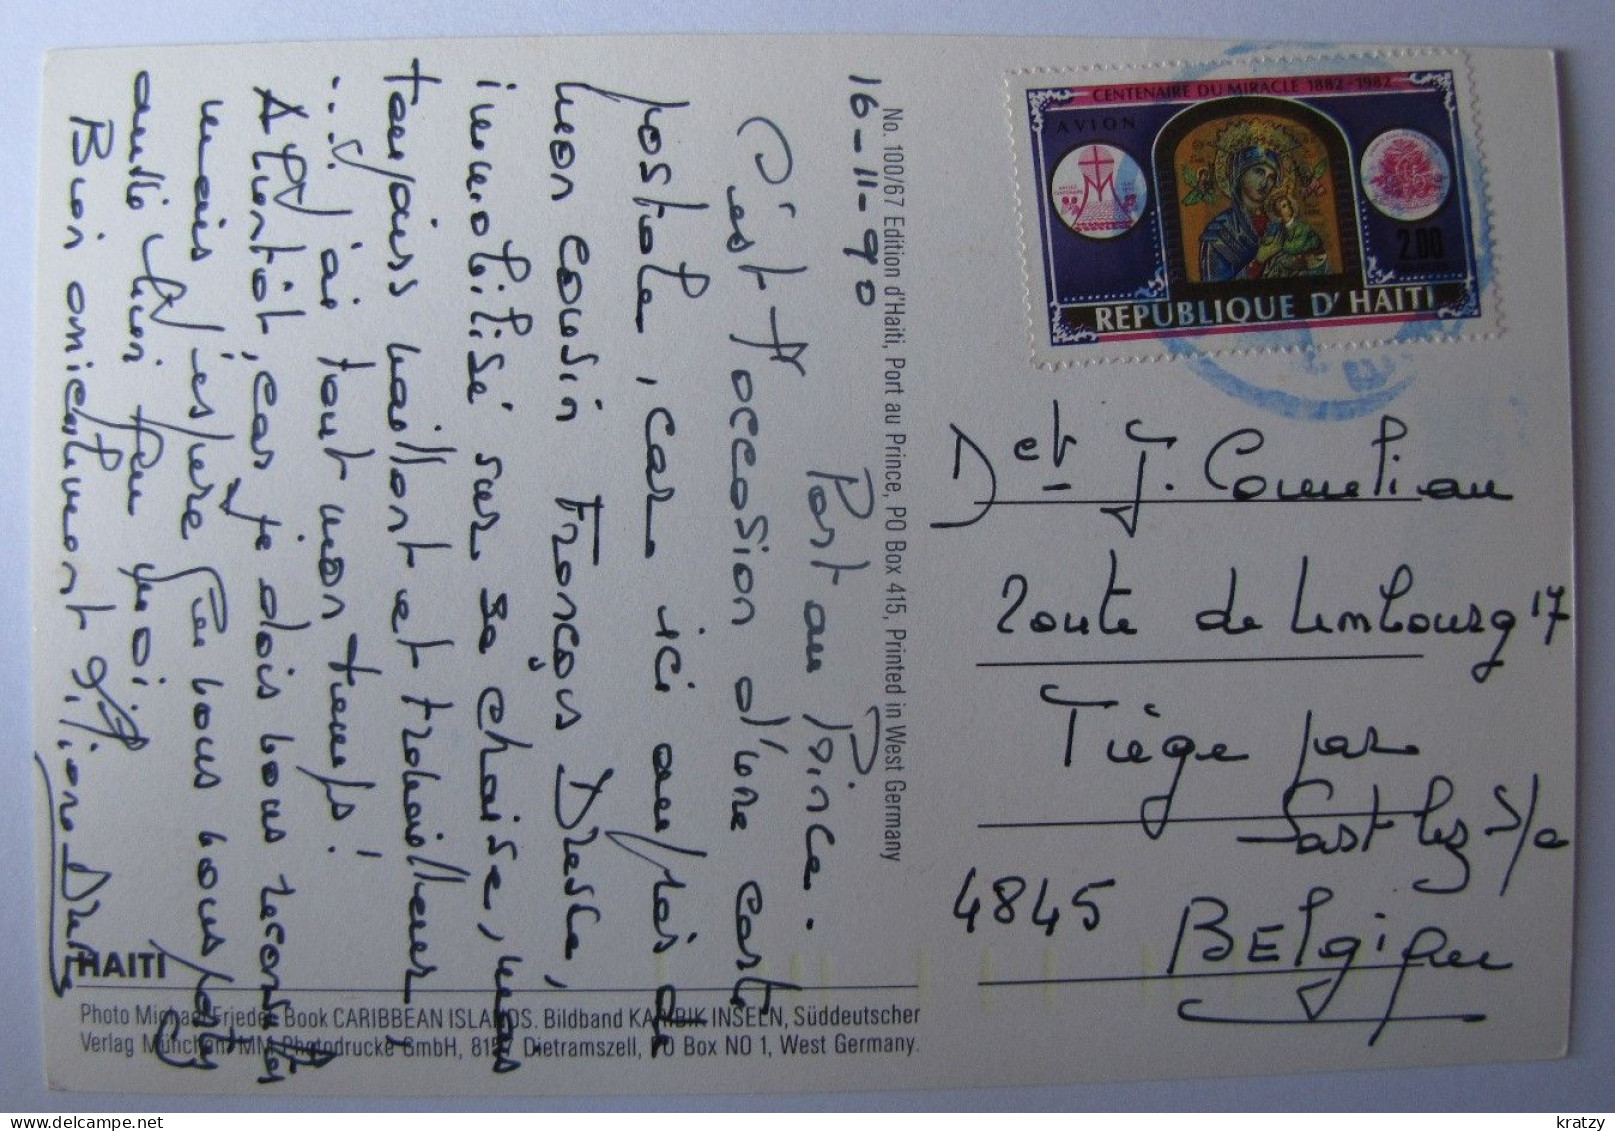 16-11-90
Port au Prince.
C'est l'occasion d'une carte
postale, car ici auprès de
mon cousin François Dresse,
immobilisé sur sa chaise, mais
toujours vaillant et travailleur,
... j'ai tout mon temps!
A bientôt, car je dois vous reconsulter
mais j'espère que vous vous portez
aussi bien que moi
Bien amicalement
No. 100/67 Edition d'Haiti, Port au Prince, PO Box 415, Printed in West Germany
CENTENAIRE DU MIRACLE 1882-1982
AVION
2.00
REPUBLIQUE D'HAITI
Dct J. Cornelian
Route de Limbourg 17
Tiège par
Sart lez S/a
4845 BElgique
HAITI
Photo Michael Friedel, Book CARIBBEAN ISLANDS. Bildband KARIBIK INSELN, Süddeutscher
Verlag München. MM-Photodrucke GmbH, Dietramszell, PO Box NO 1, West Germany.
kratzy